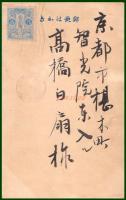 郵便はかき
京都市椹木町
智光院東入
高橋白扇様